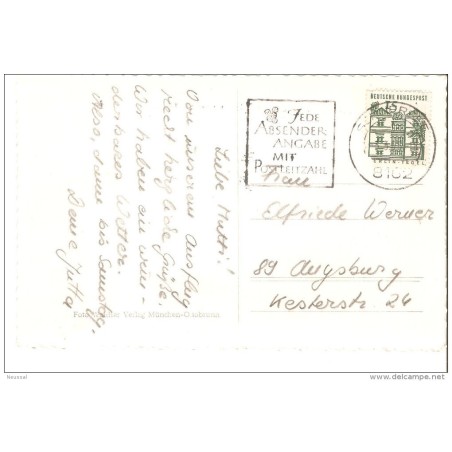 Liebe Mutti!
Von unserem Ausflug
recht herzliche Grüße.
Wir haben ein wun-
derbares Wetter.
Also, dann bis Samstag,
Deine Jutta
Verlag München-
JEDE
ABSENDER-
ANGABE
MIT
POSTLEITZAHL
DEUTSCHE BUNDESPOST
15
8162
Frau
Elfriede Werner
89 Augsburg
Kesterstr. 24
Neussal
delcampe.net